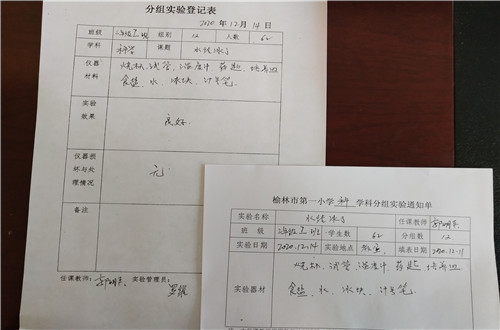 分组实验登记表
2020年12月14日
班级 三年级三班 组别 12 人数 62
学科 科学 课题 水结冰了
仪器材料 烧杯、试管、温度计、药匙、
食盐、水、冰块、计号笔。
实验效果 良好.
仪器损坏与处理情况 无
备注
任课教师: 实验管理员:
榆林市第一小学 科 学科分组实验通知单
实验名称 水结冰了 任课教师
班级 三年级三班 学生数 62 分组数 12
实验日期 2020.12.14 实验地点 教室 填表日期 2020.12.11
实验器材 烧杯、试管、温度计、药匙、
食盐、水、冰块、计号笔.